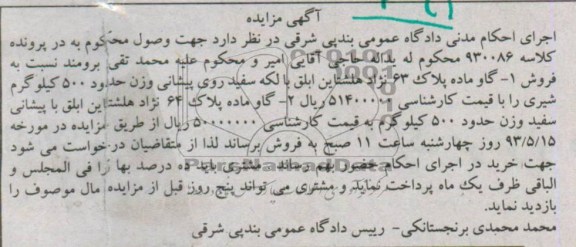 آگهی مزایده
اجرای احکام مدنی دادگاه عمومی بندپی شرقی در نظر دارد جهت وصول محکوم به در پرونده
کلاسه ۹۳۰۰۸۶ محکوم له یداله حاجی آقایی امیر و محکوم علیه محمد تقی برومند نسبت به
فروش ۱- گاو ماده پلاک ۶۳ نژاد هلشتاین ابلق با لکه سفید روی پیشانی وزن حدود ۵۰۰ کیلوگرم
شیری را با قیمت کارشناسی ۵۱۴۰۰۰۰۰ ریال ۲- گاو ماده پلاک ۶۴ نژاد هلشتاین ابلق با پیشانی
سفید وزن حدود ۵۰۰ کیلوگرم به قیمت کارشناسی ۵۰۰۰۰۰۰۰ ریال از طریق مزایده در مورخه
۹۳/۵/۱۵ روز چهارشنبه ساعت ۱۱ صبح به فروش برساند لذا از متقاضیان درخواست می شود
جهت خرید در اجرای احکام حضور بهم رسانند مشتری باید ده درصد بها را فی المجلس و
الباقی ظرف یک ماه پرداخت نماید و مشتری می تواند پنج روز قبل از مزایده مال موصوف را
بازدید نماید.
محمد محمدی برنجستانکی- رییس دادگاه عمومی بندپی شرقی